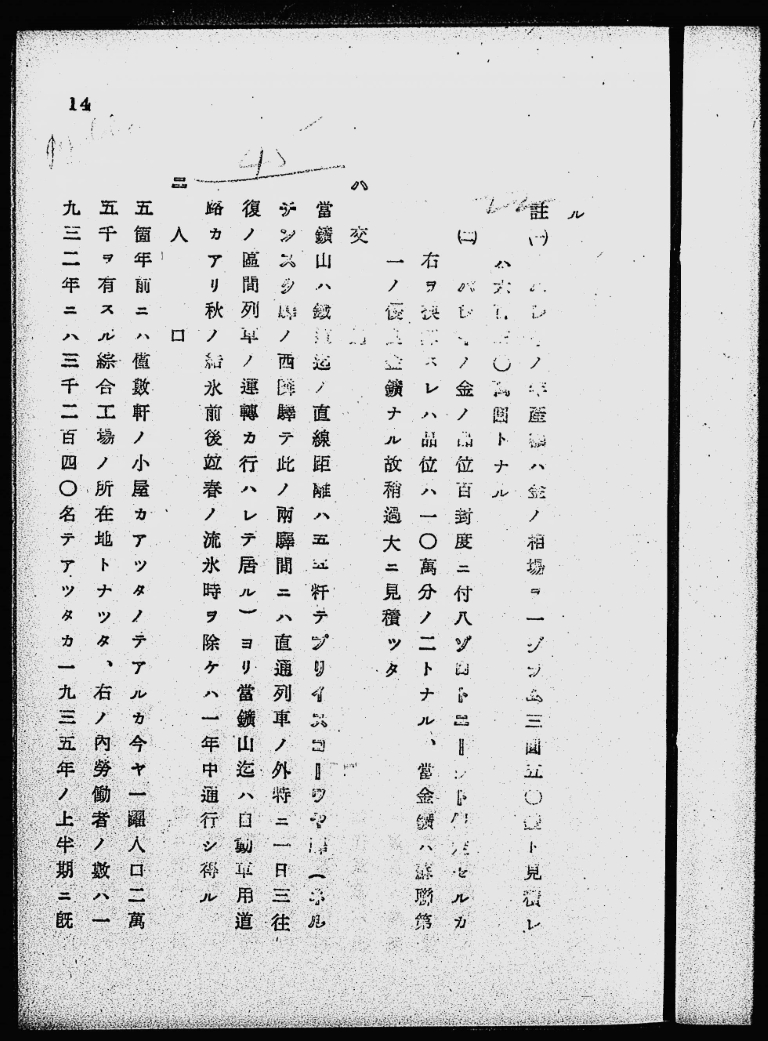 14
45
ル
註㈠ バレイノ年産額ハ金ノ相場ヲ一グラム三圓五〇錢ト見積レ
ハ六百 〇萬圓トナル
㈡ バレイノ金ノ品位百封度ニ付八ゾロトニーント セルカ
右ヲ換算スレハ品位ハ一〇萬分ノ二トナル、當金鑛ハ蘇聯第
一ノ優良金鑛ナル故稍過大ニ見積ツタ
ハ 交
當鑛山ハ鐵道迄ノ直線距離ハ五五粁テプリイスコーワヤ驛(ネル
チンスク驛ノ西隣驛テ此ノ兩驛間ニハ直通列車ノ外特ニ一日三往
復ノ區間列車ノ運轉カ行ハレテ居ル)ヨリ當鑛山迄ハ自動車用道
路カアリ秋ノ結氷前後竝春ノ流氷時ヲ除ケハ一年中通行シ得ル
ニ 人 口
五箇年前ニハ僅數軒ノ小屋カアツタノテアルカ今ヤ一躍人口二萬
五千ヲ有スル綜合工場ノ所在地トナツタ、右ノ內勞働者ノ數ハ一
九三二年ニハ三千二百四〇名テアツタカ一九三五年ノ上半期ニ旣